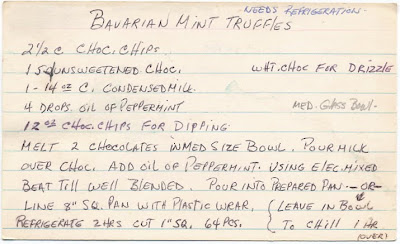 NEEDS REFRIGERATION
BAVARIAN MINT TRUFFLES
2 1/2 C CHOC. CHIPS
1 SQ UNSWEETENED CHOC. WHT. CHOC FOR DRIZZLE
1 - 14 oz C. CONDENSED MILK.
4 DROPS OIL OF PEPPERMINT MED. GLASS BOWL.
12 oz CHOC. CHIPS FOR DIPPING
MELT 2 CHOCOLATES IN MED SIZE BOWL. POUR MILK
OVER CHOC. ADD OIL OF PEPPERMINT. USING ELEC. MIXED
BEAT TILL WELL BLENDED. POUR INTO PREPARED PAN. - OR -
LINE 8" SQ. PAN WITH PLASTIC WRAP. ( LEAVE IN BOWL
REFRIGERATE 2 HRS CUT 1" SQ. 64 PCS. TO CHILL 1 HR
(OVER)